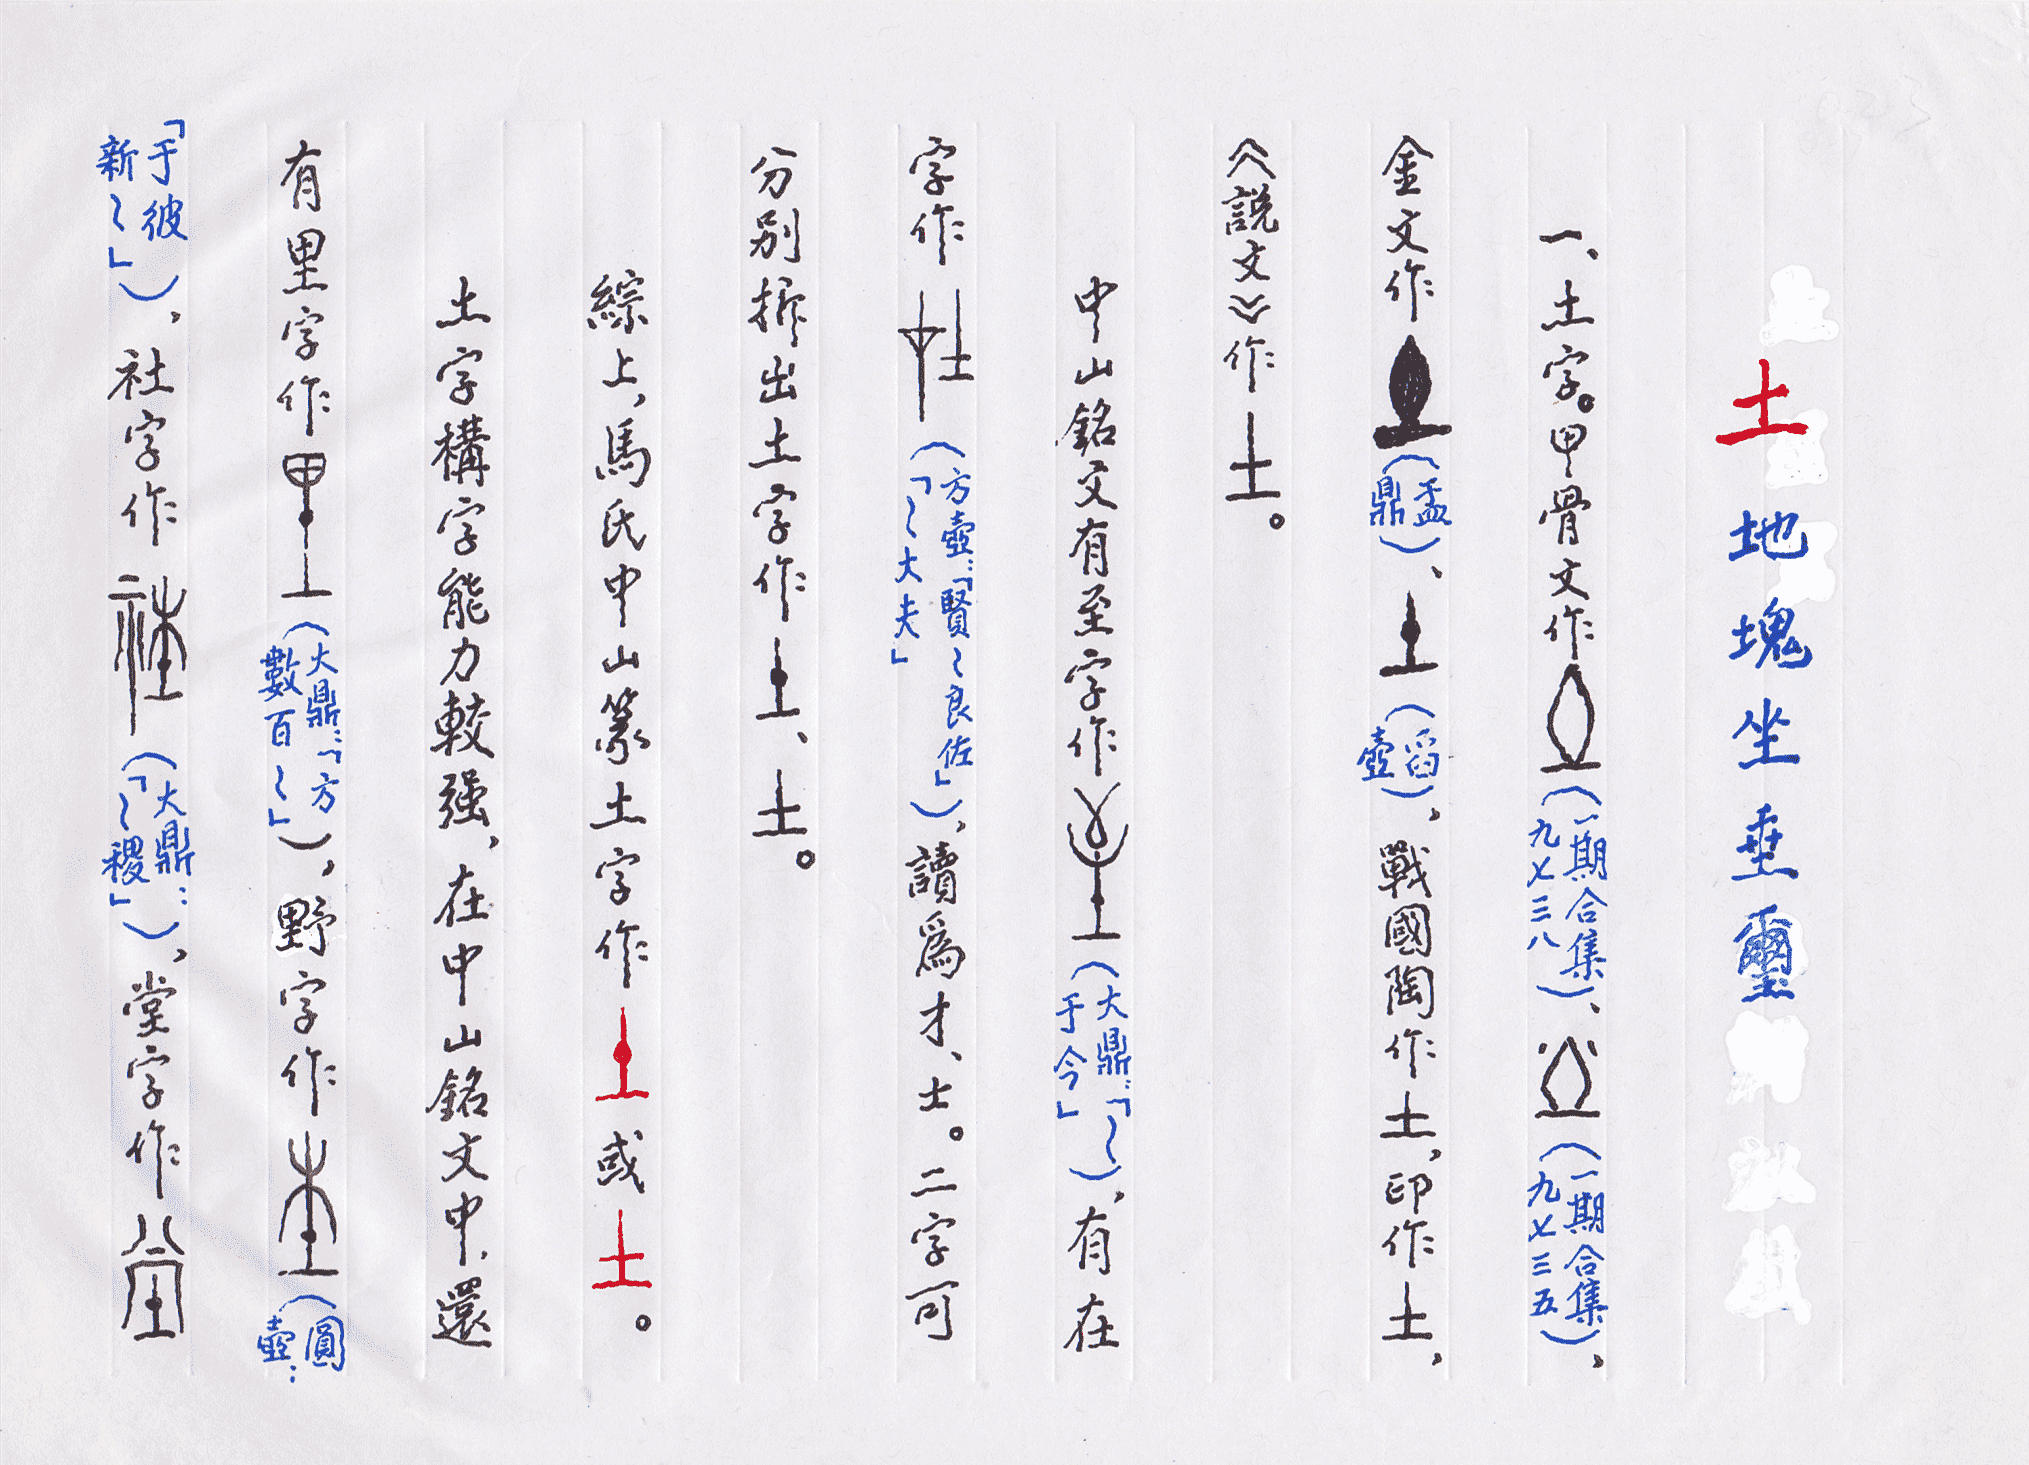 土 地塊坐垂璽
一、土字。甲骨文作（一期合集九七三八）、（一期合集九七三五），
金文作（盂鼎）、（舀壺），戰國陶作土，印作土，
《説文》作土。
中山銘文有至字作（大鼎：「～于今」），有在
字作（方壺：「賢～良佐」「～大夫」），讀爲才、士。二字可
分别拆出土字作土、土。
綜上，馬氏中山篆土字作土或土。
土字構字能力較强，在中山銘文中，還
有里字作（大鼎：「方數百～」），野字作（圓壺：
「于彼新～」），社字作（大鼎：「～稷」），堂字作